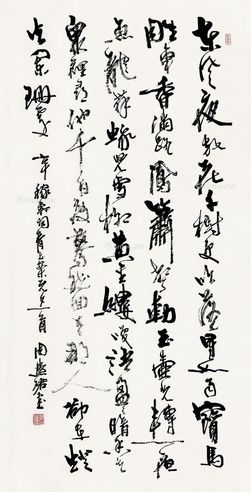 東風夜放花千樹更吹落星如雨寶馬
雕車香滿路鳳簫聲動玉壺光轉一夜
魚龍舞蛾兒雪柳黃金縷笑語盈盈暗香去
衆裡尋他千百度驀然回首那人卻在燈
火闌珊處 辛稼軒詞青玉案元夕一首 周慧珺書